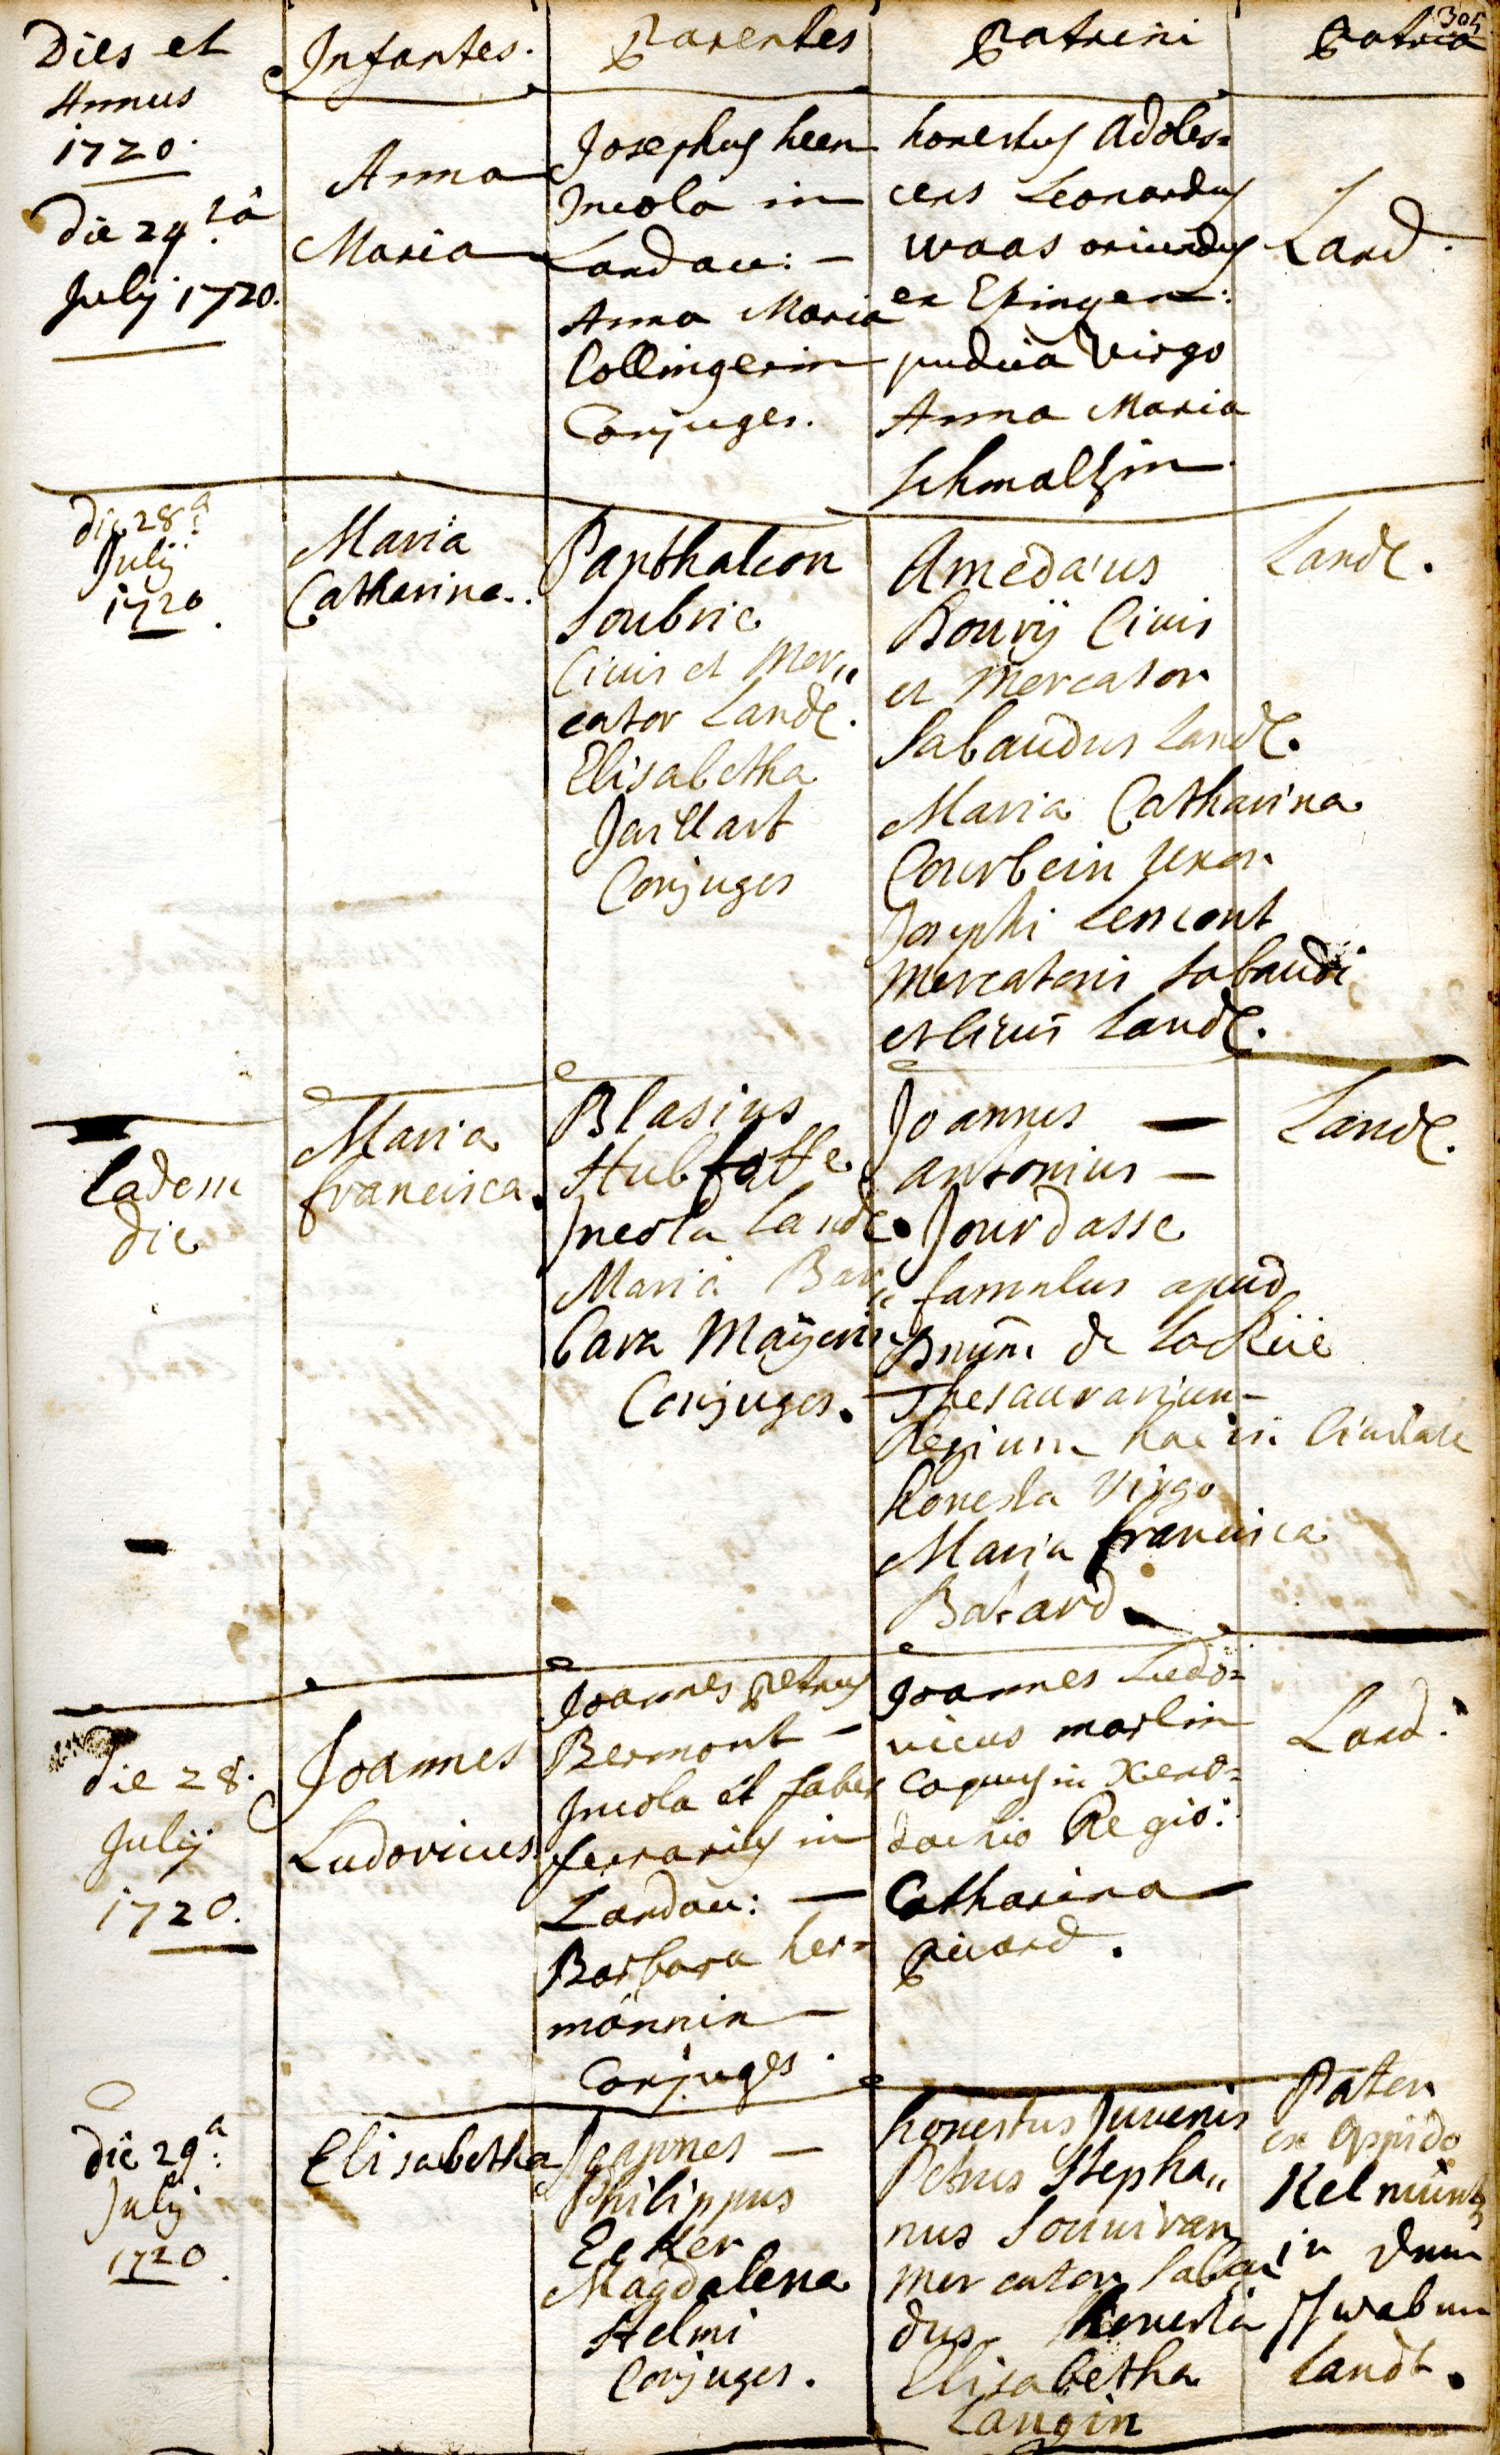 305
Dies et
Annus
1720.
Infantes.
Parentes
Patrini
Patria
die 24tâ
July 1720.
Anna
Maria
Josephus heen
Incola in
Landau: –
Anna Maria
Collingerin
Conjuges.
honestus Adoles=
cens Leonardus
waas oriundus
ex Epingen:
pudica Virgo
Anna Maria
Schmaltzin
Land.
die 28a
July
1720.
Maria
Catharina.
Panthaleon
Soubrie
Civis et Mer„
cator Landt.
Elisabetha
Jaillart
Conjuges
Amedæus
Bourÿ Civis
et Mercator
Sabaudus Landt.
Maria Catharina
Courbein uxor
Josephi Lencont
Mercatoris Sabaudi
et Civis Landt.
Landt.
Eadem
die
Maria
francisca.
Blasius
Hubfasse
Incola Landt.
Maria Bar„
bara Maÿerin
Conjuges.
Joannes –
antonius –
Jourdasse
famulus apud
Dnum de La Rüe
Thesaurarium
Regium hac in Civitate
honesta Virgo
Maria francisca
Batard
Landt.
die 28.
July
1720.
Joannes
Ludovicus
Joannes Petrus
Bermont –
Incola et faber
ferrarius in
Landau: –
Barbara her=
männin –
Conjuges.
Joannes Ludo=
vicus marlin
coquus in Xeno=
dochio Regio:
Catharina
Picard.
Land.
die 29a
July
1720.
Elisabetha
Joannes –
Philippus
Ecker
Magdalena
Helmi
Conjuges.
honestus Juvenis
Petrus Stepha„
nus Souviran
mercator Sabau
dus honesta
Elisabetha
Langin
Pater
ex oppido
Kelmüntz
in dem
Schwaben
Landt.